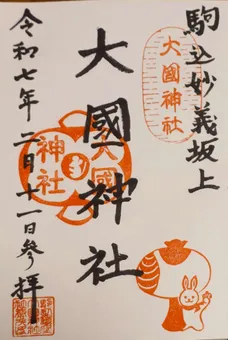 駒込妙義坂上
大國神社
大國神社
大國
神社
令和七年二月十一日參拝